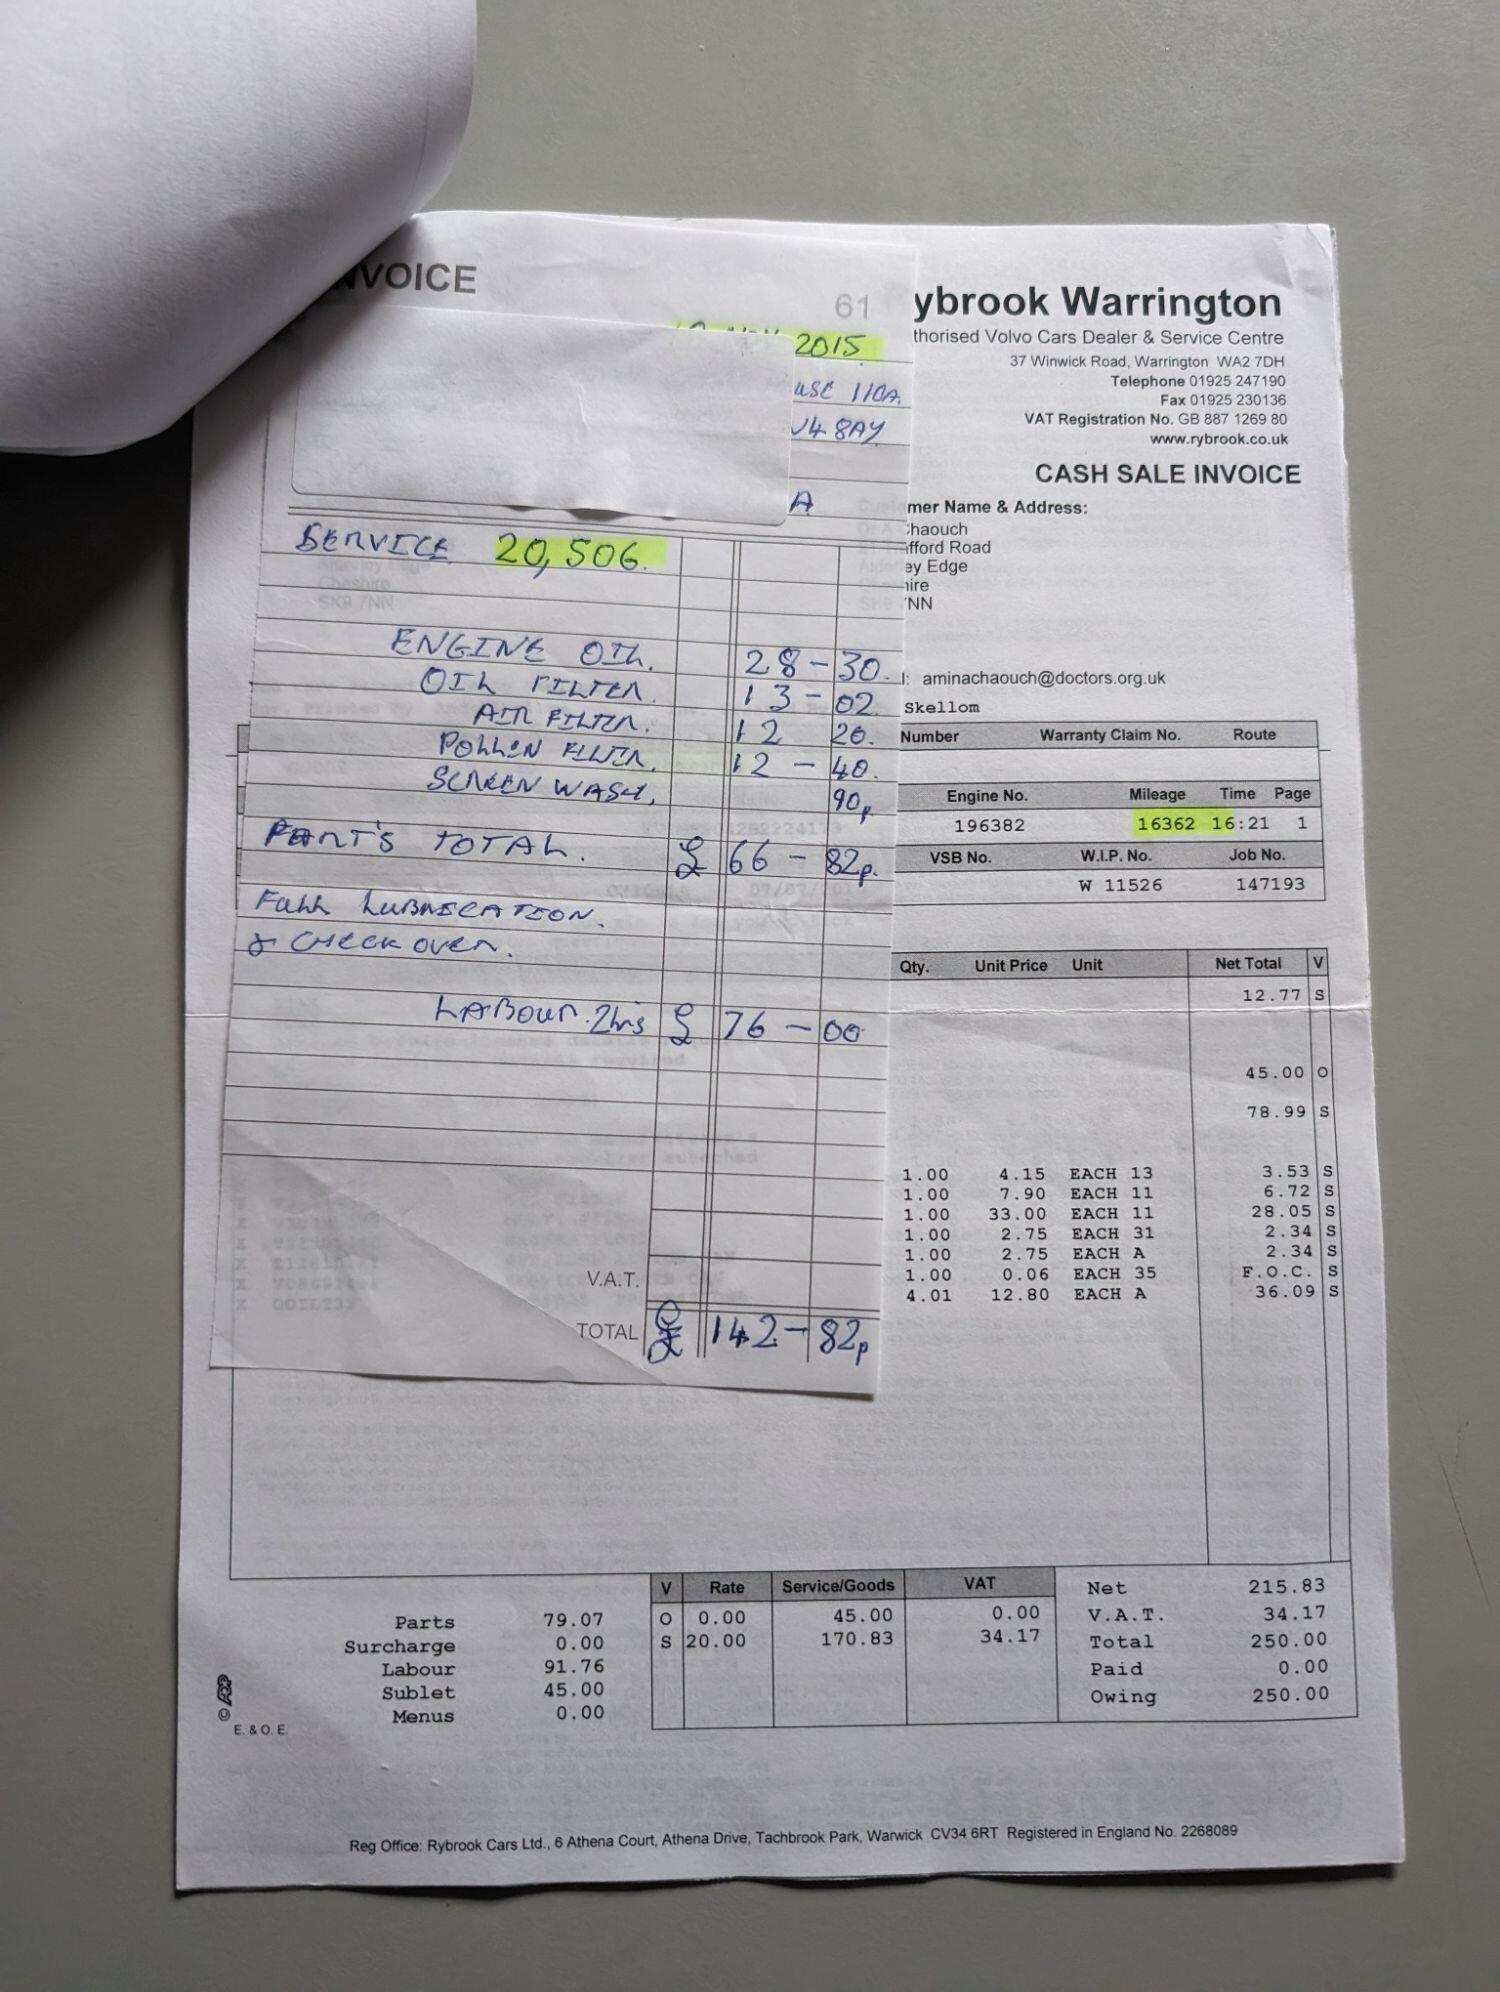 NVOICE
61
2015
USE 110A
V4 8AY
A
SERVICE 20,506.
ENGINE OIL. 28-30.
OIL FILTER. 13-02
AIR FILTER. 12 20.
POLLEN FILTER. 12-40.
SCREEN WASH. 90p
PART'S TOTAL. £ 66-82p.
FULL LUBRICATION.
& CHECK OVER.
LABOUR. 2hrs £ 76-00
V.A.T.
TOTAL £ 142-82p
ybrook Warrington
thorised Volvo Cars Dealer & Service Centre
37 Winwick Road, Warrington WA2 7DH
Telephone 01925 247190
Fax 01925 230136
VAT Registration No. GB 887 1269 80
www.rybrook.co.uk
CASH SALE INVOICE
mer Name & Address:
haouch
fford Road
ey Edge
ire
NN
l: aminachaouch@doctors.org.uk
Skellom
Number Warranty Claim No. Route
Engine No. Mileage Time Page
196382 16362 16:21 1
VSB No. W.I.P. No. Job No.
W 11526 147193
Qty. Unit Price Unit Net Total V
12.77 S
45.00 O
78.99 S
1.00 4.15 EACH 13 3.53 S
1.00 7.90 EACH 11 6.72 S
1.00 33.00 EACH 11 28.05 S
1.00 2.75 EACH 31 2.34 S
1.00 2.75 EACH A 2.34 S
1.00 0.06 EACH 35 F.O.C. S
4.01 12.80 EACH A 36.09 S
Parts 79.07
Surcharge 0.00
Labour 91.76
Sublet 45.00
Menus 0.00
V Rate Service/Goods VAT
O 0.00 45.00 0.00
S 20.00 170.83 34.17
Net 215.83
V.A.T. 34.17
Total 250.00
Paid 0.00
Owing 250.00
© ADP
E. & O. E.
Reg Office: Rybrook Cars Ltd., 6 Athena Court, Athena Drive, Tachbrook Park, Warwick CV34 6RT Registered in England No. 2268089